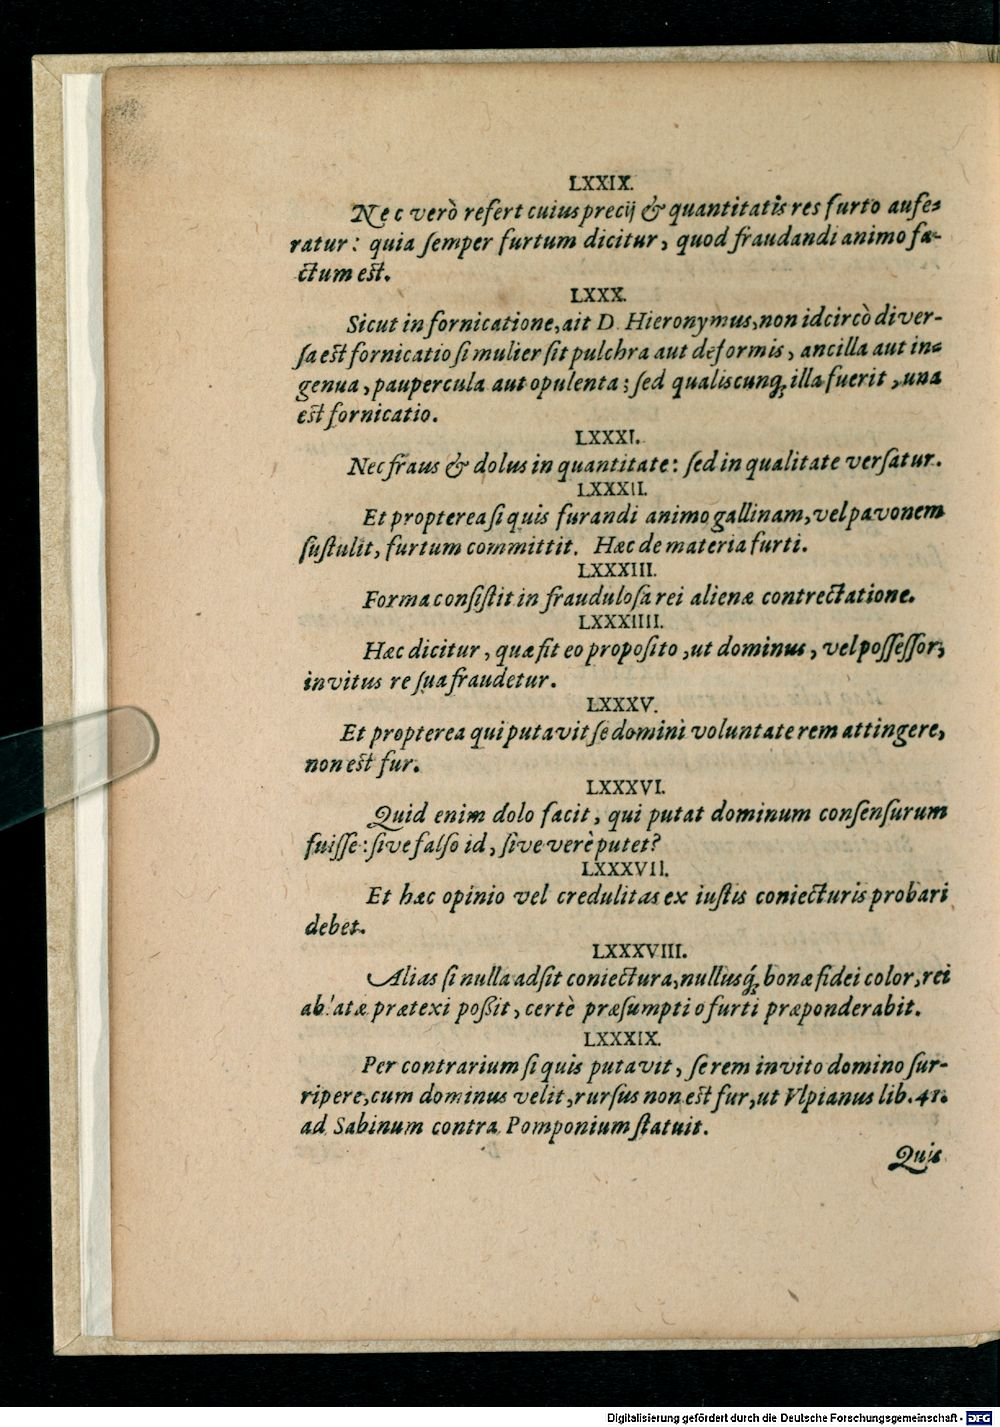 LXXIX.
Nec verò refert cuius precij & quantitatis res furto aufe-
ratur: quia semper furtum dicitur, quod fraudandi animo fa-
ctum est.
LXXX.
Sicut in fornicatione, ait D. Hieronymus, non idcircò diver-
sa est fornicatio si mulier sit pulchra aut deformis, ancilla aut in-
genua, paupercula aut opulenta; sed qualiscunq; illa fuerit, una
est fornicatio.
LXXXI.
Nec fraus & dolus in quantitate: sed in qualitate versatur.
LXXXII.
Et propterea si quis furandi animo gallinam, vel pavonem
sustulit, furtum committit. Hæc de materia furti.
LXXXIII.
Forma consistit in fraudulosa rei alienæ contrectatione.
LXXXIIII.
Hæc dicitur, quæ fit eo proposito, ut dominus, vel possessor,
invitus re sua fraudetur.
LXXXV.
Et propterea qui putavit se domini voluntate rem attingere,
non est fur.
LXXXVI.
Quid enim dolo facit, qui putat dominum consensurum
fuisse: sive falso id, sive verè putet?
LXXXVII.
Et hæc opinio vel credulitas ex iustis coniecturis probari
debet.
LXXXVIII.
Alias si nulla adsit coniectura, nullusq́; bonæ fidei color, rei
ablatæ prætexi poßit, certè præsumptio furti præponderabit.
LXXXIX.
Per contrarium si quis putavit, se rem invito domino sur-
ripere, cum dominus velit, rursus non est fur, ut Vlpianus lib. 41.
ad Sabinum contra Pomponium statuit.
Quis
Digitalisierung gefördert durch die Deutsche Forschungsgemeinschaft - DFG